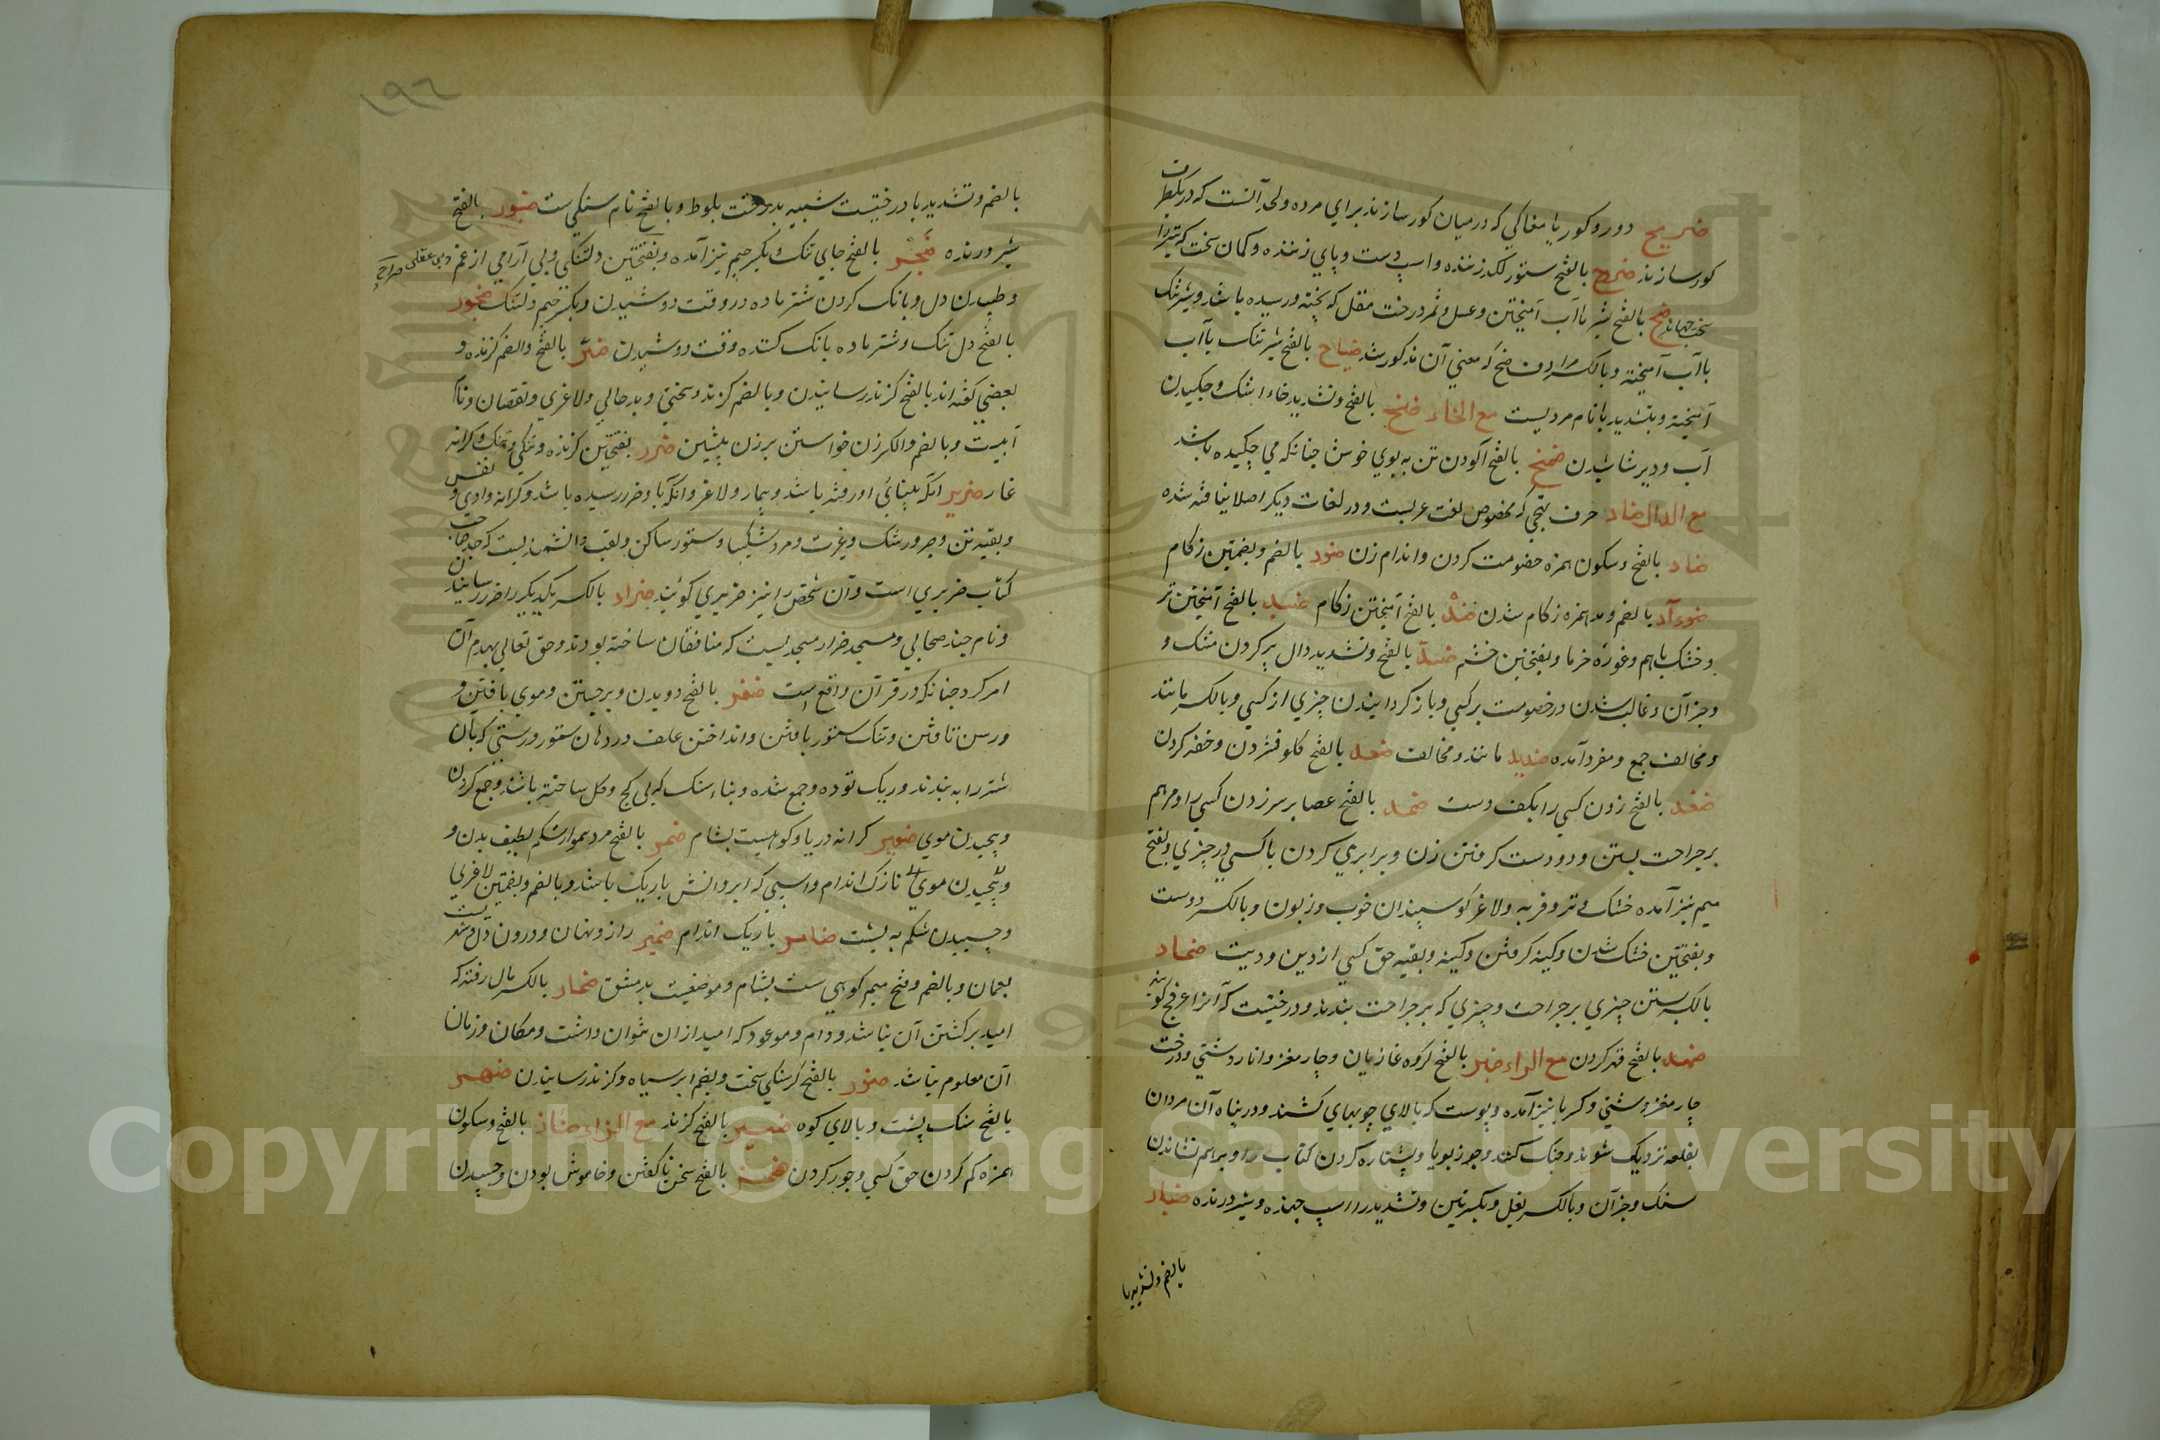 ضریح دور و کور یا مغاکی که در میان کور سازند برای مرده و لحد آنست که در یکطرف
کور سازند ضروح بالفتح ستور لکد زننده و اسپ دست و پای زننده و کمان سخت که تیر را
سخت جهاند ضیح بالفتح شیر با آب آمیختن و عسل و ثمر درخت مقل که پخته و رسیده باشد و شیر تنک
با آب آمیخته و بالکسر مرادف ضح که معنی آن مذکور شد ضیاح بالفتح شیر تنک با آب
آمیخته و بتشدید یا نام مردیست مع الخاء ضخ بالفتح و تشدید خاء اشک و چکیدن
آب و دیر شاشیدن ضمخ بالفتح آلودن تن به بوی خوش چنانکه می چکیده باشد
مع الدال ضاد حرف تهجی که مخصوص لغت عربست و در لغات دیکر اصلا یافته نشده
ضاد بالفتح و سکون همزه خصومت کردن و اندام زن ضود بالضم و بضمتین زکام
ضوءاد بالضم و مد همزه زکام شدن ضبد بالفتح آمیختن زکام ضبد بالفتح آمیختن تر
و خشک با هم و غوزه خرما و بفتحتین خشم ضد بالفتح و تشدید دال پر کردن مشک و
و جز آن و غالب شدن در خصومت بر کسی و باز کردانیدن چیزی از کسی و بالکسر مانند
و مخالف جمع و مفرد آمده ضدید مانند و مخالف ضعد بالفتح کلو فشردن و خفه کردن
ضفد بالفتح زدن کسی را بکف دست ضمد بالفتح عصا بر سر زدن کسی را و مرهم
بر جراحت بستن و دو دست کرفتن زن و برابری کردن با کسی در چیزی و بفتح
میم نیز آمده خشک و تر و فربه و لاغر کوسپندان خوب و زبون و بالکسر دوست
و بفتحتین خشک شدن و کینه کرفتن و کینه و بقیه حق کسی از دین و دیت ضماد
بالکسر بستن چیزی بر جراحت و چیزی که بر جراحت بندند و درختیست که آنرا عرفج کویند
ضهد بالفتح قهر کردن مع الراء ضبر بالفتح کروه غازیان و چار مغز و انار دشتی و درخت
چار مغز دشتی و کسر با نیز آمده و پوست که بالای چوبهای کشند و در پناه آن مردان
بقلعه نزدیک شوند و جنک کنند و جوز بویا و پشتاره کردن کتاب را و بر هم نشاندن
سنک و جز آن و بالکسر بغل و بکسرتین و تشدید را اسپ جهنده و شیر درنده ضبار
بالضم و تشدید با
١٩٦
بالضم و تشدید با درختیست شبیه بدرخت بلوط و بالفتح نام سنکی ست ضبور بالفتح
شیر درنده ضجر بالفتح جای تنک و بکسر جیم نیز آمده و بفتحتین دلتنکی و بی آرامی از غم
و طپیدن دل و بانک کردن شتر ماده در وقت دوشیدن و بکسر جیم دلتنک ضجور
بالفتح دل تنک و شتر ماده بانک کننده وقت دوشیدن ضر بالفتح والضم کزنده و
بعضی کفته اند بالفتح کزند رسانیدن و بالضم کزند و سختی و بد حالی و لاغری و نقصان و نا
آبیت و بالضم والکسر زن خواستن بر زن پیشین ضرر بفتحتین کزنده و تنکی و تنک و کرانه
غار ضریر آنکه بینائی او رفته باشد و بیمار و لاغر و آنکه با و ضرر رسیده باشد و کرانه وادی و نفس
و بقیه تن و جرور شک و غیرت و مرد شکیبا و ستور ساکن و لقب دانشمندیست که صاحب
کتاب ضریری است و آن شخص را نیز ضریری کویند ضرار بالکسر یکدیکر را ضرر رسانیدن
و نام چند صحابی و مسجد ضرار مسجدیست که منافقان ساخته بودند و حق تعالی بهدم آن
امر کرد چنانکه در قرآن واقع است ضفر بالفتح دویدن و برجستن و موی بافتن و
و رسن تافتن و تنک ستور بافتن و انداختن علف در دهان ستور و رسنی که بآن
شتر را به بندند و ریک توده و جمع شده و بناء سنک که بی کچ و کل ساخته باشند و جمع کردن
و پیچیدن موی ضفیر کرانه دریا و کوهیست بشام ضمر بالفتح مرد هموار شکم لطیف بدن و
و پیچیدن موی نازک اندام و اسپی که ابروانش باریک باشد و بالضم و بضمتین لاغری
و چسپیدن شکم به پشت ضامر باریک اندام ضمیر راز و نهان و درون دل و
بعمان و بالضم و فتح میم کوهی ست بشام و موضعیست بدمشق ضمار بالکسر مال رفته که
امید برکشتن آن نباشد و وام و موعود که امید از آن نتوان داشت و مکان و زمان
آن معلوم نباشد ضور بالفتح کرسنکی سخت و بضم ابر سیاه و کزند رسانیدن ضهر
بالفتح سنک پشت و بالای کوه ضیر بالفتح کزند مع الزاء ضاز بالفتح و سکون
همزه کم کردن حق کسی و جور کردن ضمز بالفتح سخن نا کفتن و خاموش بودن و چسپیدن
Copyright © King Saud University